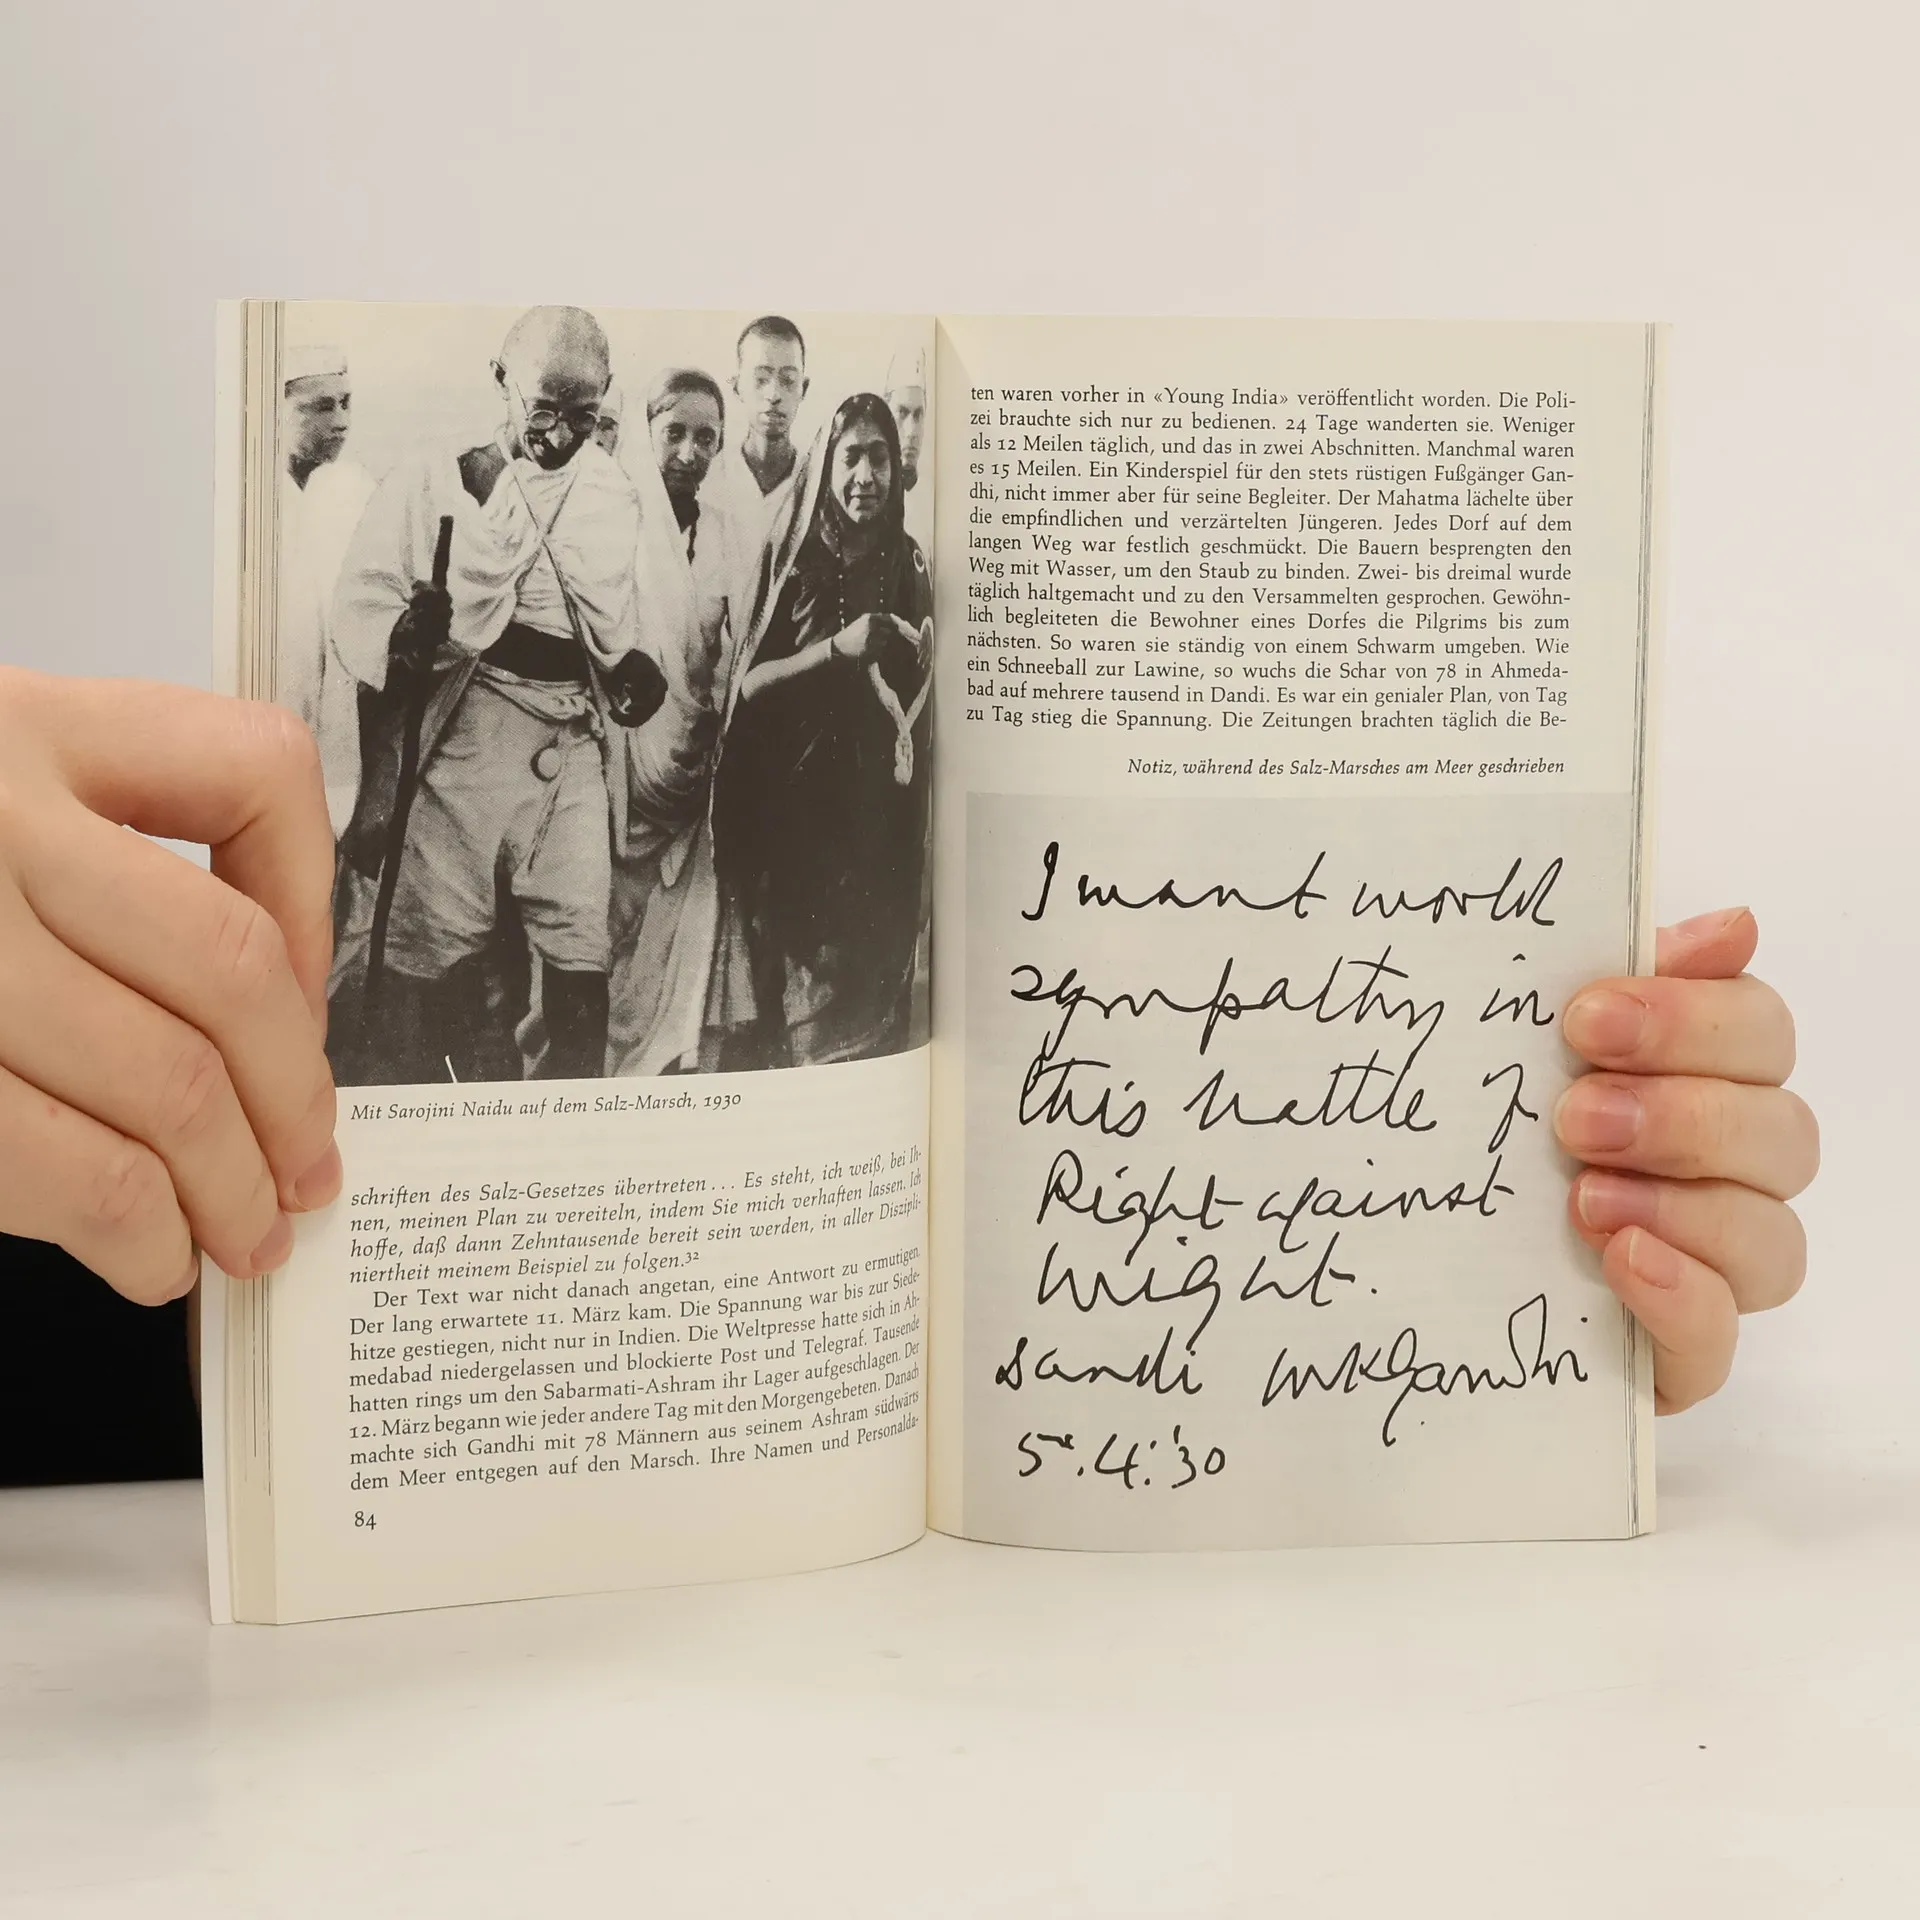 Mit Sarojini Naidu auf dem Salz-Marsch, 1930
schriften des Salz-Gesetzes übertreten ... Es steht, ich weiß, bei Ih-
nen, meinen Plan zu vereiteln, indem Sie mich verhaften lassen. Ich
hoffe, daß dann Zehntausende bereit sein werden, in aller Diszipli-
niertheit meinem Beispiel zu folgen.³²
Der Text war nicht danach angetan, eine Antwort zu ermutigen.
Der lang erwartete 11. März kam. Die Spannung war bis zur Siede-
hitze gestiegen, nicht nur in Indien. Die Weltpresse hatte sich in Ah-
medabad niedergelassen und blockierte Post und Telegraf. Tausende
hatten rings um den Sabarmati-Ashram ihr Lager aufgeschlagen. Der
12. März begann wie jeder andere Tag mit den Morgengebeten. Danach
machte sich Gandhi mit 78 Männern aus seinem Ashram südwärts
dem Meer entgegen auf den Marsch. Ihre Namen und Personalda-
84
ten waren vorher in «Young India» veröffentlicht worden. Die Poli-
zei brauchte sich nur zu bedienen. 24 Tage wanderten sie. Weniger
als 12 Meilen täglich, und das in zwei Abschnitten. Manchmal waren
es 15 Meilen. Ein Kinderspiel für den stets rüstigen Fußgänger Gan-
dhi, nicht immer aber für seine Begleiter. Der Mahatma lächelte über
die empfindlichen und verzärtelten Jüngeren. Jedes Dorf auf dem
langen Weg war festlich geschmückt. Die Bauern besprengten den
Weg mit Wasser, um den Staub zu binden. Zwei- bis dreimal wurde
täglich haltgemacht und zu den Versammelten gesprochen. Gewöhn-
lich begleiteten die Bewohner eines Dorfes die Pilgrims bis zum
nächsten. So waren sie ständig von einem Schwarm umgeben. Wie
ein Schneeball zur Lawine, so wuchs die Schar von 78 in Ahmeda-
bad auf mehrere tausend in Dandi. Es war ein genialer Plan, von Tag
zu Tag stieg die Spannung. Die Zeitungen brachten täglich die Be-
Notiz, während des Salz-Marsches am Meer geschrieben
I want world
sympathy in
this battle of
Right against
might.
Dandi MKGandhi
5.4.'30